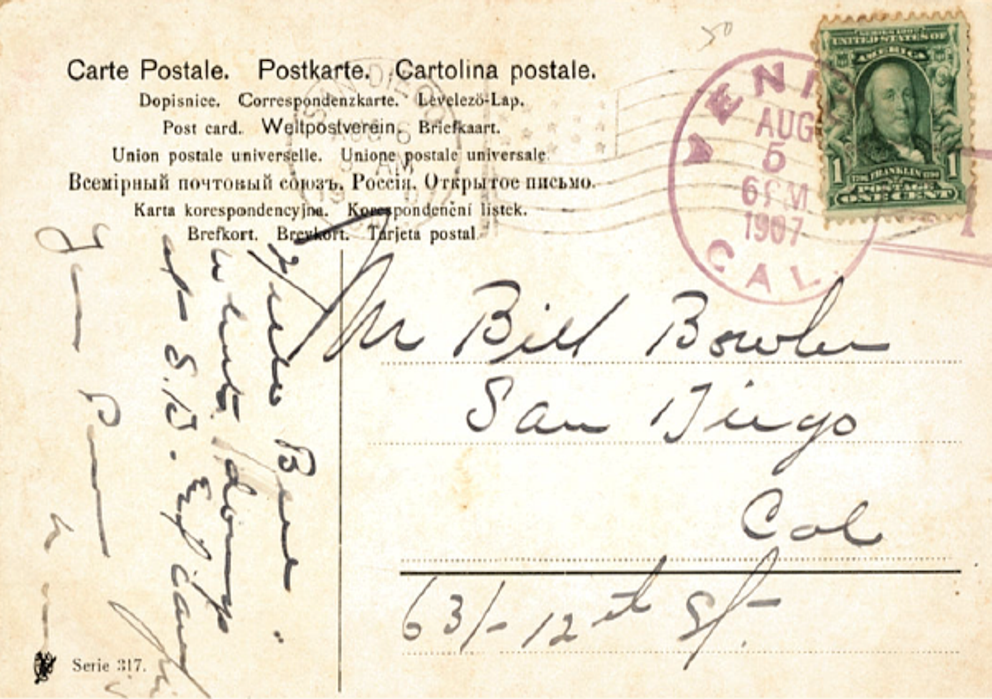 Carte Postale. Postkarte. Cartolina postale.
Dopisnice. Correspondenzkarte. Levelezö-Lap.
Post card. Weltpostverein. Briefkaart.
Union postale universelle. Unione postale universale
Всемірный почтовый союзъ. Россія. Открытое письмо.
Karta korespondencyjna. Korespondenční lístek.
Brefkort. Brevkort. Tarjeta postal.
50
VENICE
AUG
5
6 PM
1907
CAL.
SAN DIEGO
AUG 6
AM
SERIES 1902
UNITED STATES OF
AMERICA
1 FRANKLIN 1
POSTAGE
ONE CENT
Hello Bill
whats doing
at S.D.
Mr Bill Bowler
San Diego
Cal
631-12th St-
Serie 317.